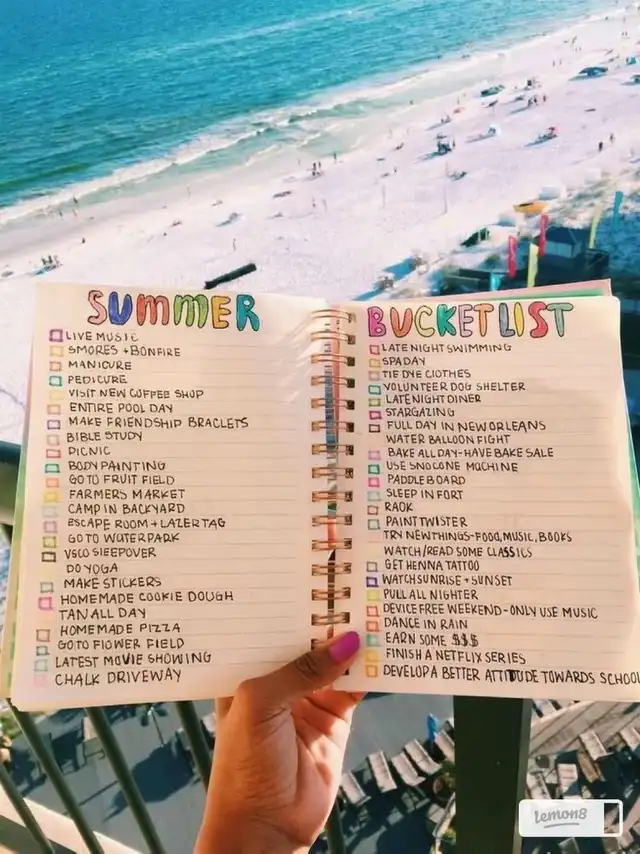 SUMMER
LIVE MUSIC
SMORES + BONFIRE
MANICURE
PEDICURE
VISIT NEW COFFEE SHOP
ENTIRE POOL DAY
MAKE FRIENDSHIP BRACLETS
BIBLE STUDY
PICNIC
BODY PAINTING
GO TO FRUIT FIELD
FARMERS MARKET
CAMP IN BACKYARD
ESCAPE ROOM + LAZER TAG
GO TO WATERPARK
VSCO SLEEPOVER
DO YOGA
MAKE STICKERS
HOMEMADE COOKIE DOUGH
TAN ALL DAY
HOMEMADE PIZZA
GO TO FLOWER FIELD
LATEST MOVIE SHOWING
CHALK DRIVEWAY
BUCKET LIST
LATE NIGHT SWIMMING
SPA DAY
TIE DYE CLOTHES
VOLUNTEER DOG SHELTER
LATE NIGHT DINER
STARGAZING
FULL DAY IN NEW ORLEANS
WATER BALLOON FIGHT
BAKE ALL DAY-HAVE BAKE SALE
USE SNOCONE MACHINE
PADDLE BOARD
SLEEP IN FORT
RAOK
PAINT TWISTER
TRY NEW THINGS-FOOD, MUSIC, BOOKS
WATCH/READ SOME CLASSICS
GET HENNA TATTOO
WATCH SUNRISE + SUNSET
PULL ALL NIGHTER
DEVICE FREE WEEKEND-ONLY USE MUSIC
DANCE IN RAIN
EARN SOME $$$
FINISH A NETFLIX SERIES
DEVELOP A BETTER ATTITUDE TOWARDS SCHOOL
lemon8